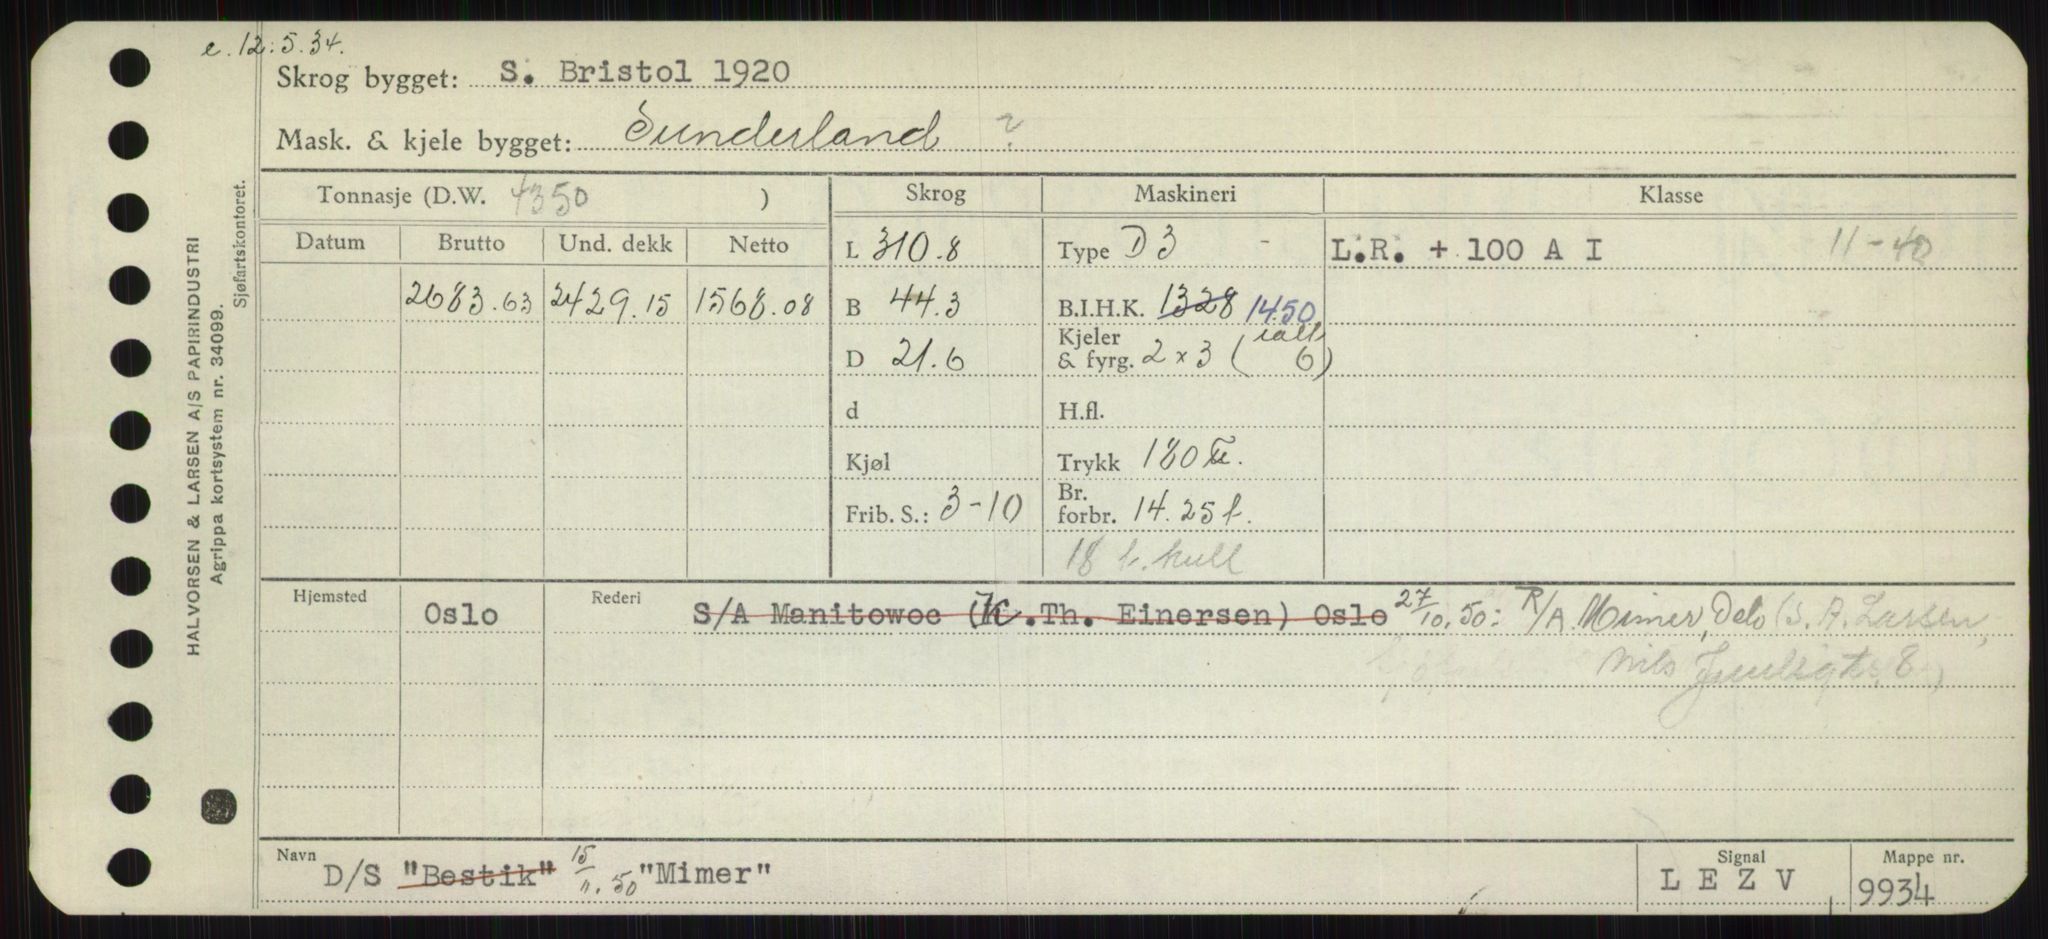 e. 12.5.34.
Skrog bygget: S. Bristol 1920
Mask. & kjele bygget: Sunderland ?
HALVORSEN & LARSEN A/S PAPIRINDUSTRI
Agrippa kortsystem nr. 34099.
Sjøfartskontoret.
Tonnasje (D.W. 4350 ) Skrog Maskineri Klasse
Datum Brutto Und. dekk Netto L 310.8 Type D 3 - L.R. + 100 A I 11-40
2683.63 2429.15 1568.08 B 44.3 B.I.H.K. 1328 1450
D 21.6 Kjeler & fyrg. 2 x 3 (ialt 6)
d H.fl.
Kjøl Trykk 180 lb.
Frib. S.: 3-10 Br. forbr. 14.25 t.
18 t. kull
Hjemsted Oslo Rederi S/A Manitowoc (K.Th. Einersen) Oslo 27/10.50: R/A. Mimer, Oslo (S. A. Larsen,
Nils Juulsgt. 8)
Navn D/S "Bestik" 15/11.50 "Mimer" Signal L E Z V Mappe nr. 9934